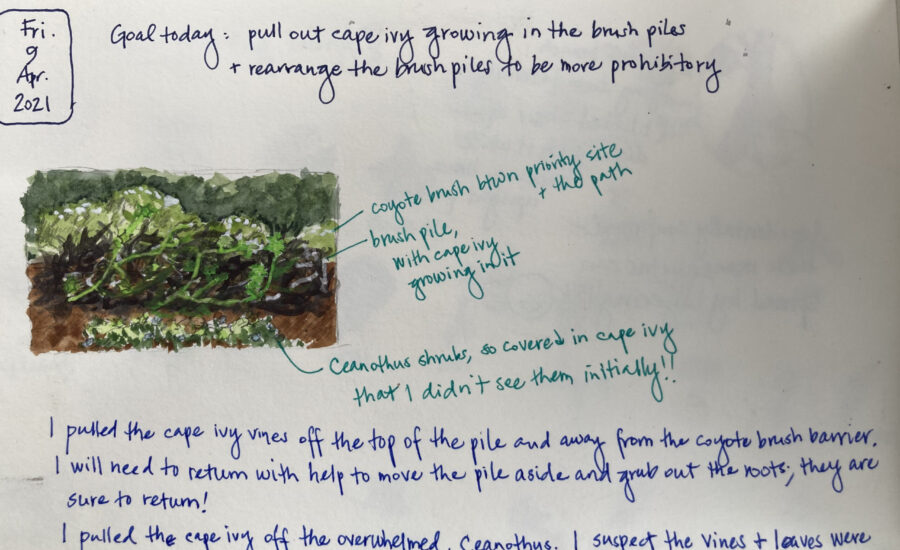 Fri.
9
Apr.
2021
Goal today: pull out cape ivy growing in the brush piles
+ rearrange the brush piles to be more prohibitory
coyote brush btwn priority site
+ the path
brush pile,
with cape ivy
growing in it
Ceanothus shrubs, so covered in cape ivy
that I didn't see them initially!!
I pulled the cape ivy vines off the top of the pile and away from the coyote brush barrier.
I will need to return with help to move the pile aside and grub out the roots; they are
sure to return!
I pulled the cape ivy off the overwhelmed Ceanothus. I suspect the vines + leaves were